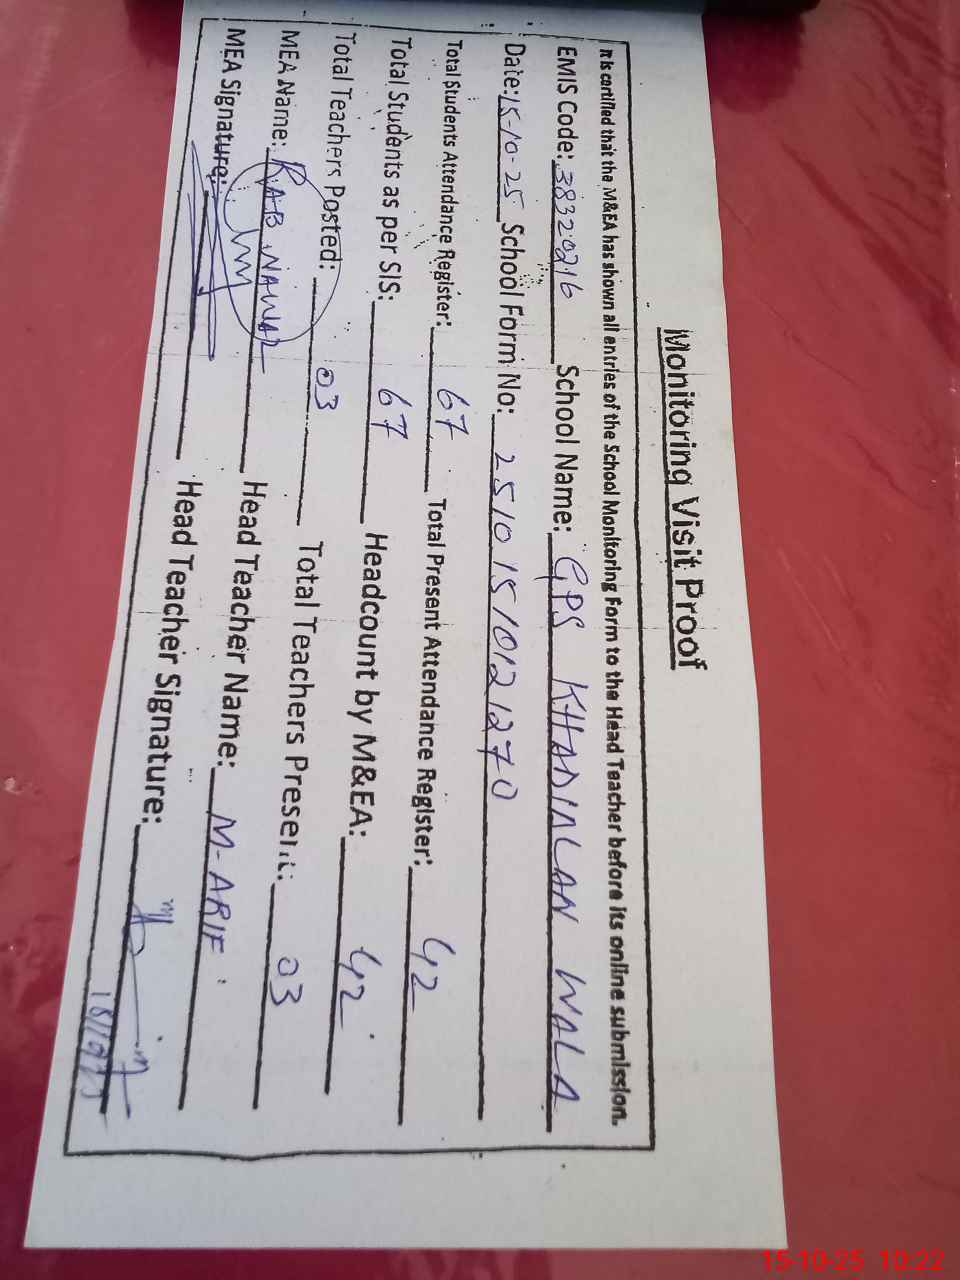 Monitoring Visit Proof
It is certified that the M&EA has shown all entries of the School Monitoring Form to the Head Teacher before its online submission.
EMIS Code: 38320216 School Name: GPS KHADIALAN WALA
Date: 15-10-25 School Form No: 25101510121270
Total Students Attendance Register: 67 Total Present Attendance Register: 42
Total Students as per SIS: 67 Headcount by M&EA: 42
Total Teachers Posted: 03 Total Teachers Present: 03
MEA Name: RAB NAWAZ Head Teacher Name: M-ARIF
MEA Signature: Head Teacher Signature:
15-10-25 10:22